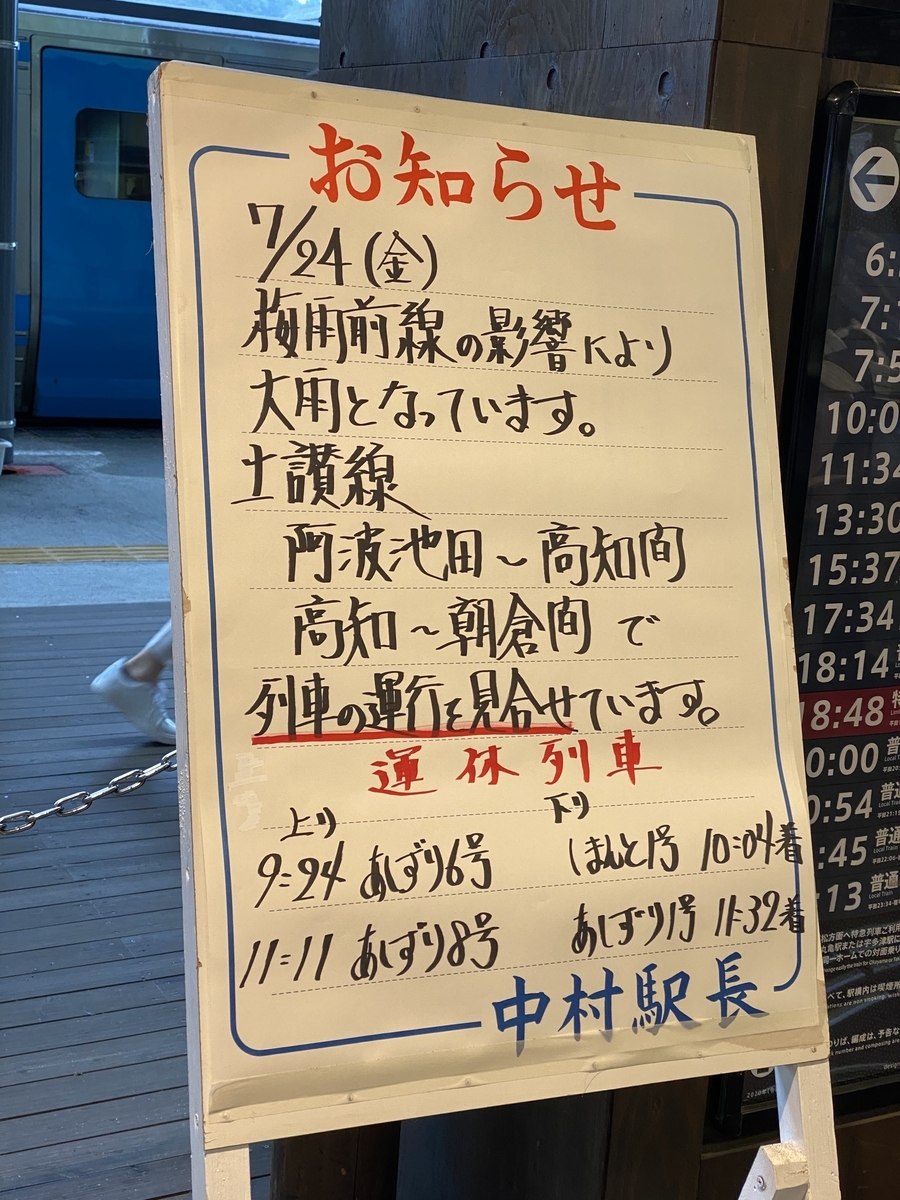 お知らせ
7/24(金)
梅雨前線の影響により
大雨となっています。
土讃線
阿波池田~高知間
高知~朝倉間で
列車の運行を見合せています。
運休列車
上り 下り
9:24 あしずり6号 しまんと1号 10:04着
11:11 あしずり8号 あしずり1号 11:32着
中村駅長
6:
7:
7:5
10:0
11:34
13:30
15:37
17:34
18:14
8:48 特
0:00 普
Local Train
0:54 普通
Local Train
:45 普通
Local Train
:13 普通
Local Train